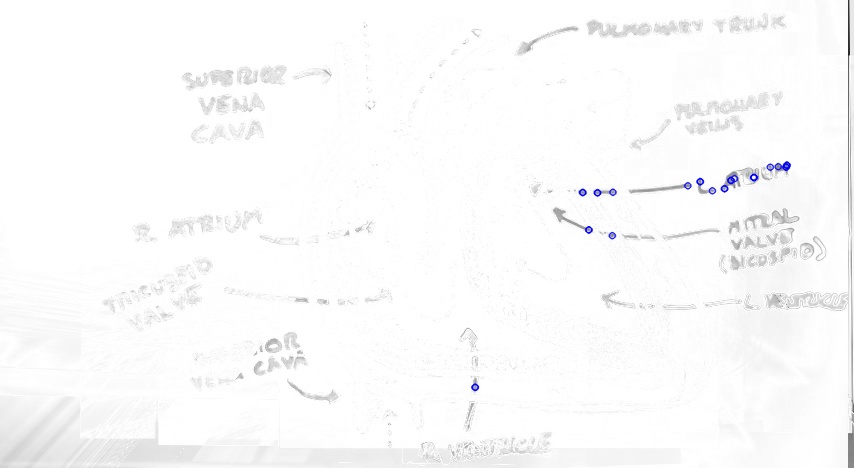 PULMONARY TRUNK
SUPERIOR
VENA
CAVA
PULMONARY
VEINS
L. ATRIUM
R. ATRIUM
MITRAL
VALVE
(BICUSPID)
TRICUSPID
VALVE
L. VENTRICLE
VENA CAVA
R. VENTRICLE